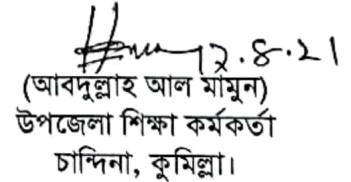 ২.৪.২১
(আবদুল্লাহ আল মামুন)
উপজেলা শিক্ষা কর্মকর্তা
চান্দিনা, কুমিল্লা।